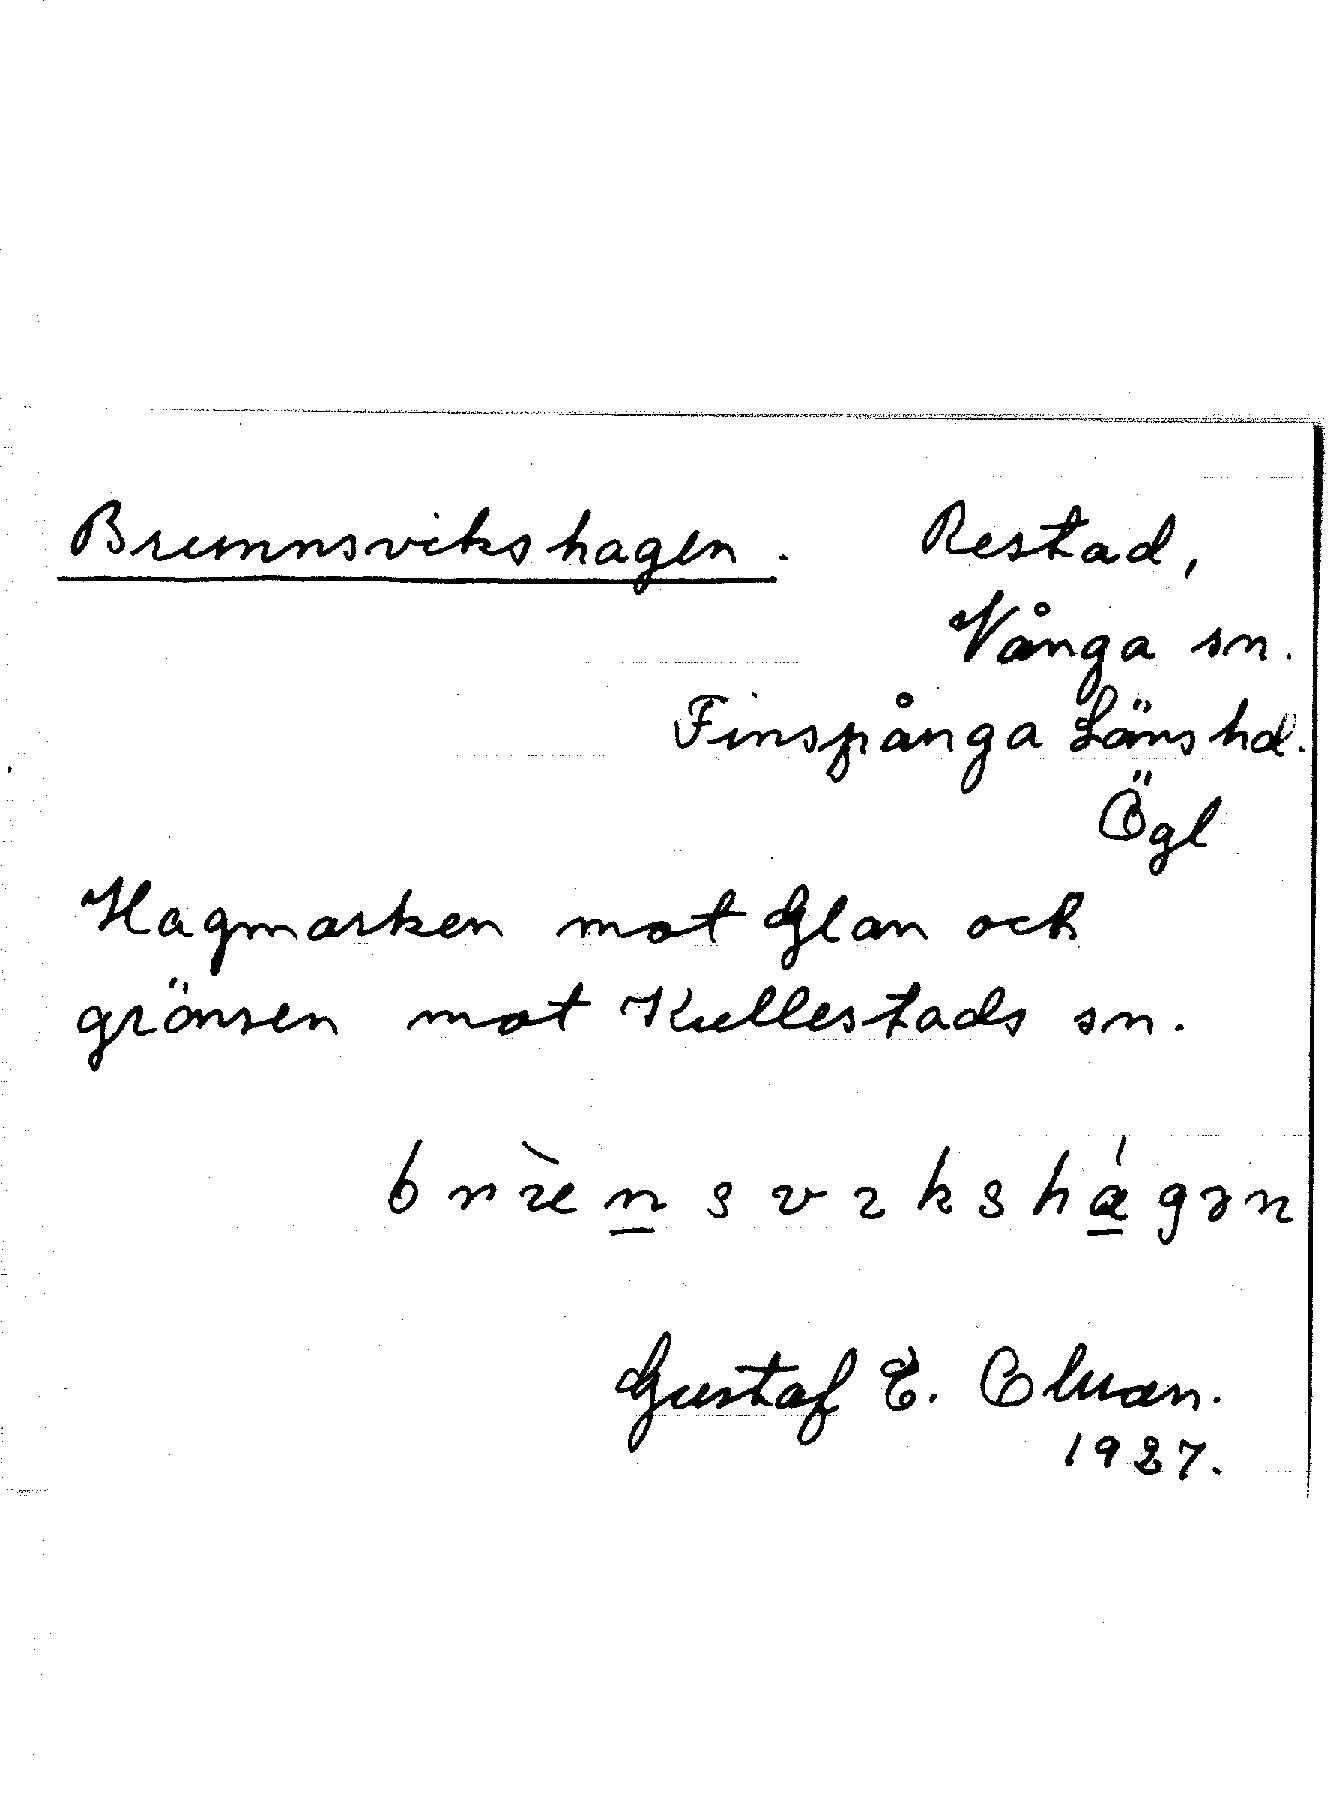 Brunnsvikshagen. Restad,
Vånga sn.
Finspånga Länshd.
Ögl
Hagmarken mot Glan och
gränsen mot Kullestads sn.
Gustaf E. Olson.
1927.